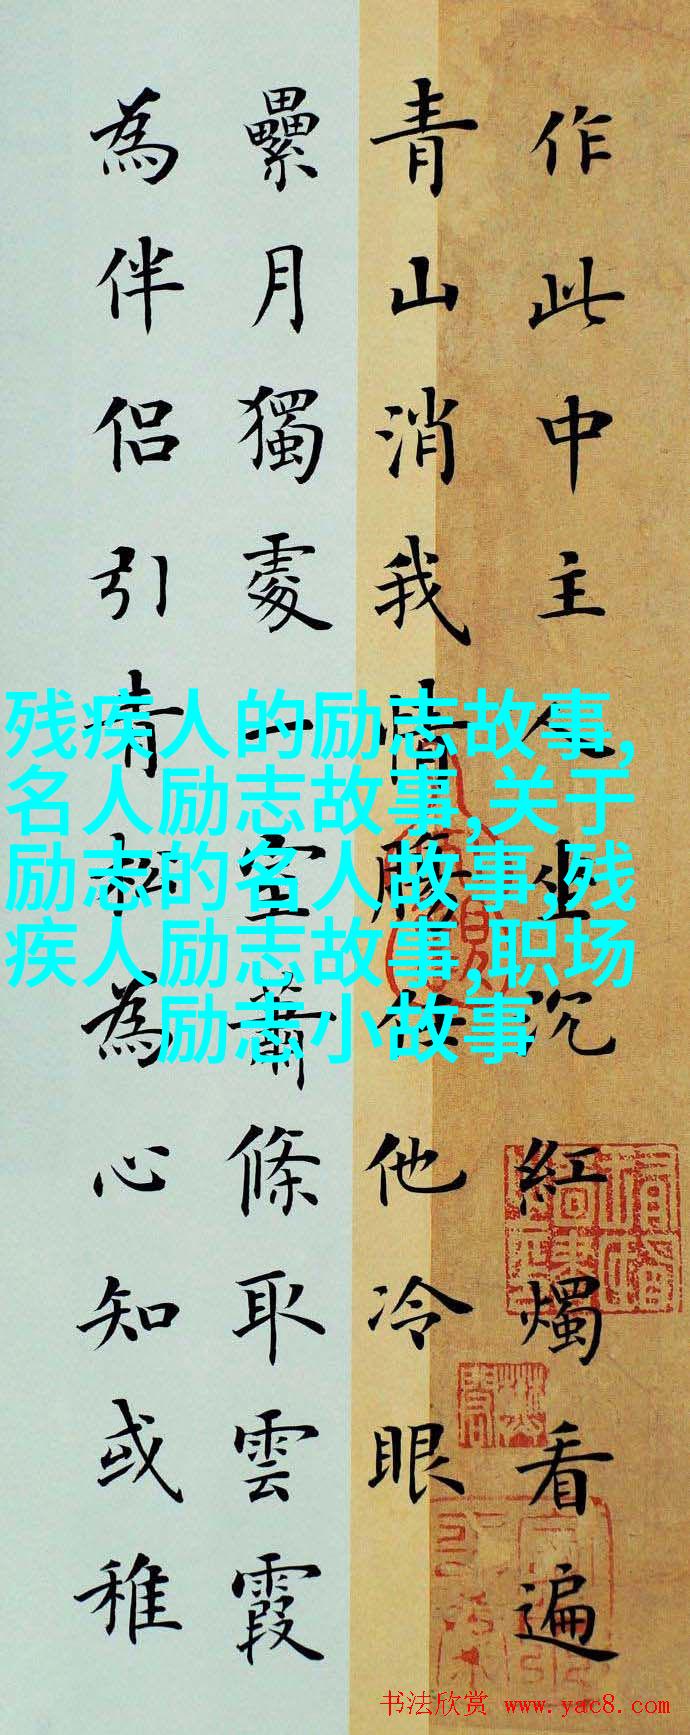 作此中主人坐沉紅燭看遍
青山消我情腸任他冷眼
纍月獨處一室蕭條取雲霞
為伴侶引青松為心知或稚
残疾人的励志故事,
名人励志故事,关于
励志的名人故事,残
疾人励志故事,职场
励志小故事
书法欣赏 www.yac8.com